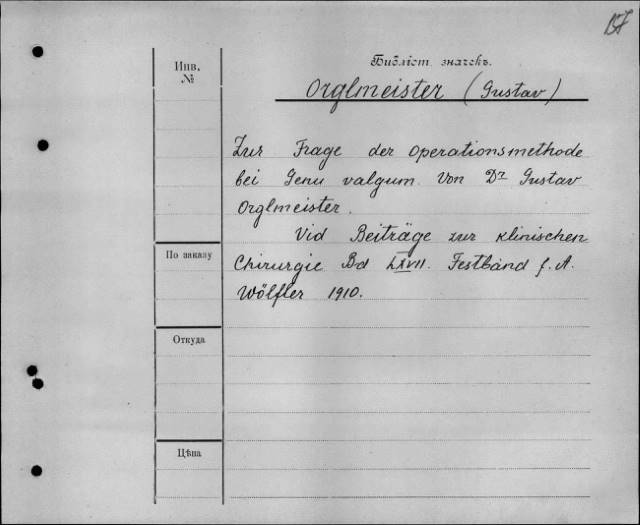 Библіот. значекъ.
Инв.
№
Orglmeister (Gustav)
Zur Frage der Operationsmethode
bei Genu valgum. Von Dr Gustav
Orglmeister.
Vid Beiträge zur klinischen
Chirurgie Bd LXVII. Festband f. A.
Wölfler 1910.
По заказу
Откуда
Цѣна